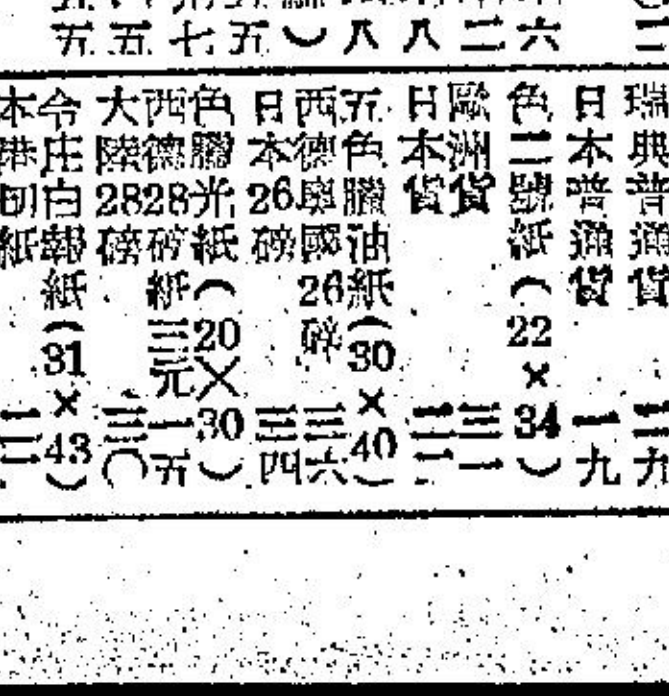 六
二
八
八
︶
五
七
五
五
瑞典普通貨 二九
日本普通貨 一九
色二號紙︵22×34︶
歐洲貨 三一
日本貨 二二
五色臘油紙︵30×40︶
西德奧國26磅 三六
日本26磅 三四
色臘光紙︵20×30︶
西德28磅紙 三元一五
大陸28磅 三〇
令庄白報紙︵31×43︶